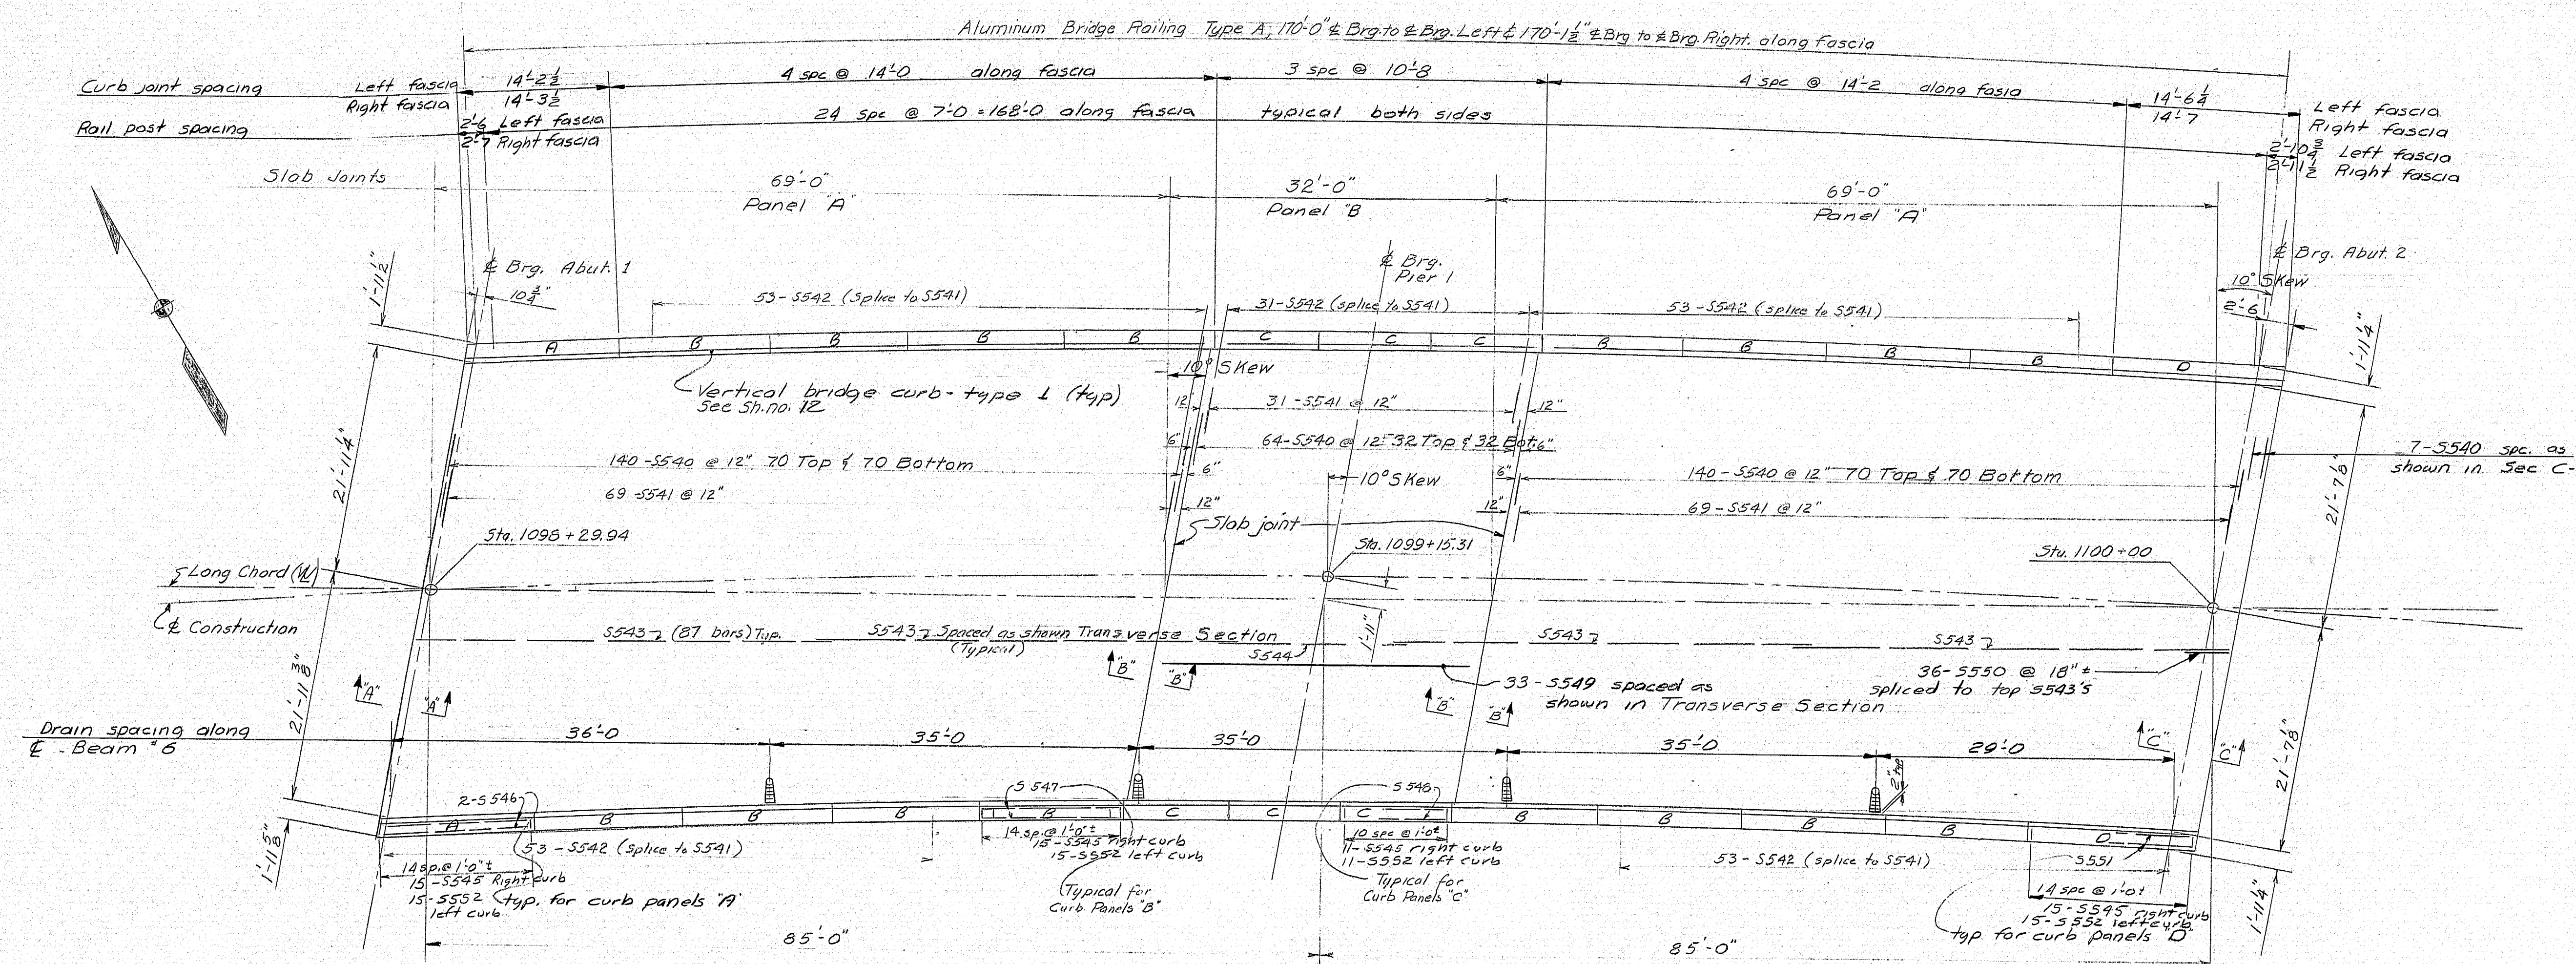 Aluminum Bridge Railing Type A, 170'-0" ℄ Brg. to ℄ Brg. Left & 170'-1½" ℄ Brg to ℄ Brg. Right. along fascia
Curb joint spacing
Left fascia
Right fascia
14'-2½
14'-3½
4 spc @ 14'-0 along fascia
3 spc @ 10'-8
4 spc @ 14'-2 along fasia
14'-6¼
14'-7
Left fascia
Right fascia
Rail post spacing
2'-6 Left fascia
2'-7 Right fascia
24 spc @ 7'-0 = 168'-0 along fascia typical both sides
2'-10¾ Left fascia
2'-11½ Right fascia
Slab Joints
69'-0"
Panel "A"
32'-0"
Panel "B
69'-0"
Panel "A"
℄ Brg. Abut. 1
10¾"
1'-11½"
℄ Brg.
Pier 1
℄ Brg. Abut. 2
10° Skew
2'-6
1'-11¼"
53-S542 (splice to S541)
31-S542 (splice to S541)
53-S542 (splice to S541)
A
B
B
B
B
C
C
C
B
B
B
B
D
10° Skew
Vertical bridge curb - type 1 (typ)
See Sh. no. 12
12
31-S541 @ 12"
12"
6"
64-S540 @ 12" 32 Top & 32 Bot.
6"
21'-11¼"
140-S540 @ 12" 70 Top & 70 Bottom
6"
6"
140-S540 @ 12" 70 Top & 70 Bottom
7-S540 spc. as
shown in Sec C-
69-S541 @ 12"
12"
10° Skew
12"
69-S541 @ 12"
21'-7⅞"
Slab joint
Sta. 1098+29.94
Sta. 1099+15.31
Sta. 1100+00
Long Chord (W)
℄ Construction
S543 (87 bars) Typ.
S543 Spaced as shown Transverse Section
(Typical)
S543
S543
S544
1'-11"
36-S550 @ 18"±
spliced to top S543's
33-S549 spaced as
shown in Transverse Section
21'-11⅜"
"A"
"A"
"B"
"B"
"B"
"B"
"C"
"C"
21'-7⅞"
Drain spacing along
℄ - Beam #6
36'-0
35'-0
35'-0
35'-0
29'-0
2' typ
2-S546
S547
S548
A
B
B
B
B
C
C
C
B
B
B
B
D
1'-11⅝"
53-S542 (splice to S541)
14 sp. @ 1'-0"±
15-S545 Right curb
15-S552
left curb
typ. for curb panels "A"
14 sp. @ 1'-0"±
15-S545 right curb
15-S552 left curb
Typical for
Curb Panels "B"
10 spc @ 1'-0±
11-S545 right curb
11-S552 left curb
Typical for
Curb Panels "C"
53-S542 (splice to S541)
S551
14 spc @ 1'-0±
15-S545 right curb
15-S552 left curb
typ. for curb panels "D"
1'-11¼"
85'-0"
85'-0"